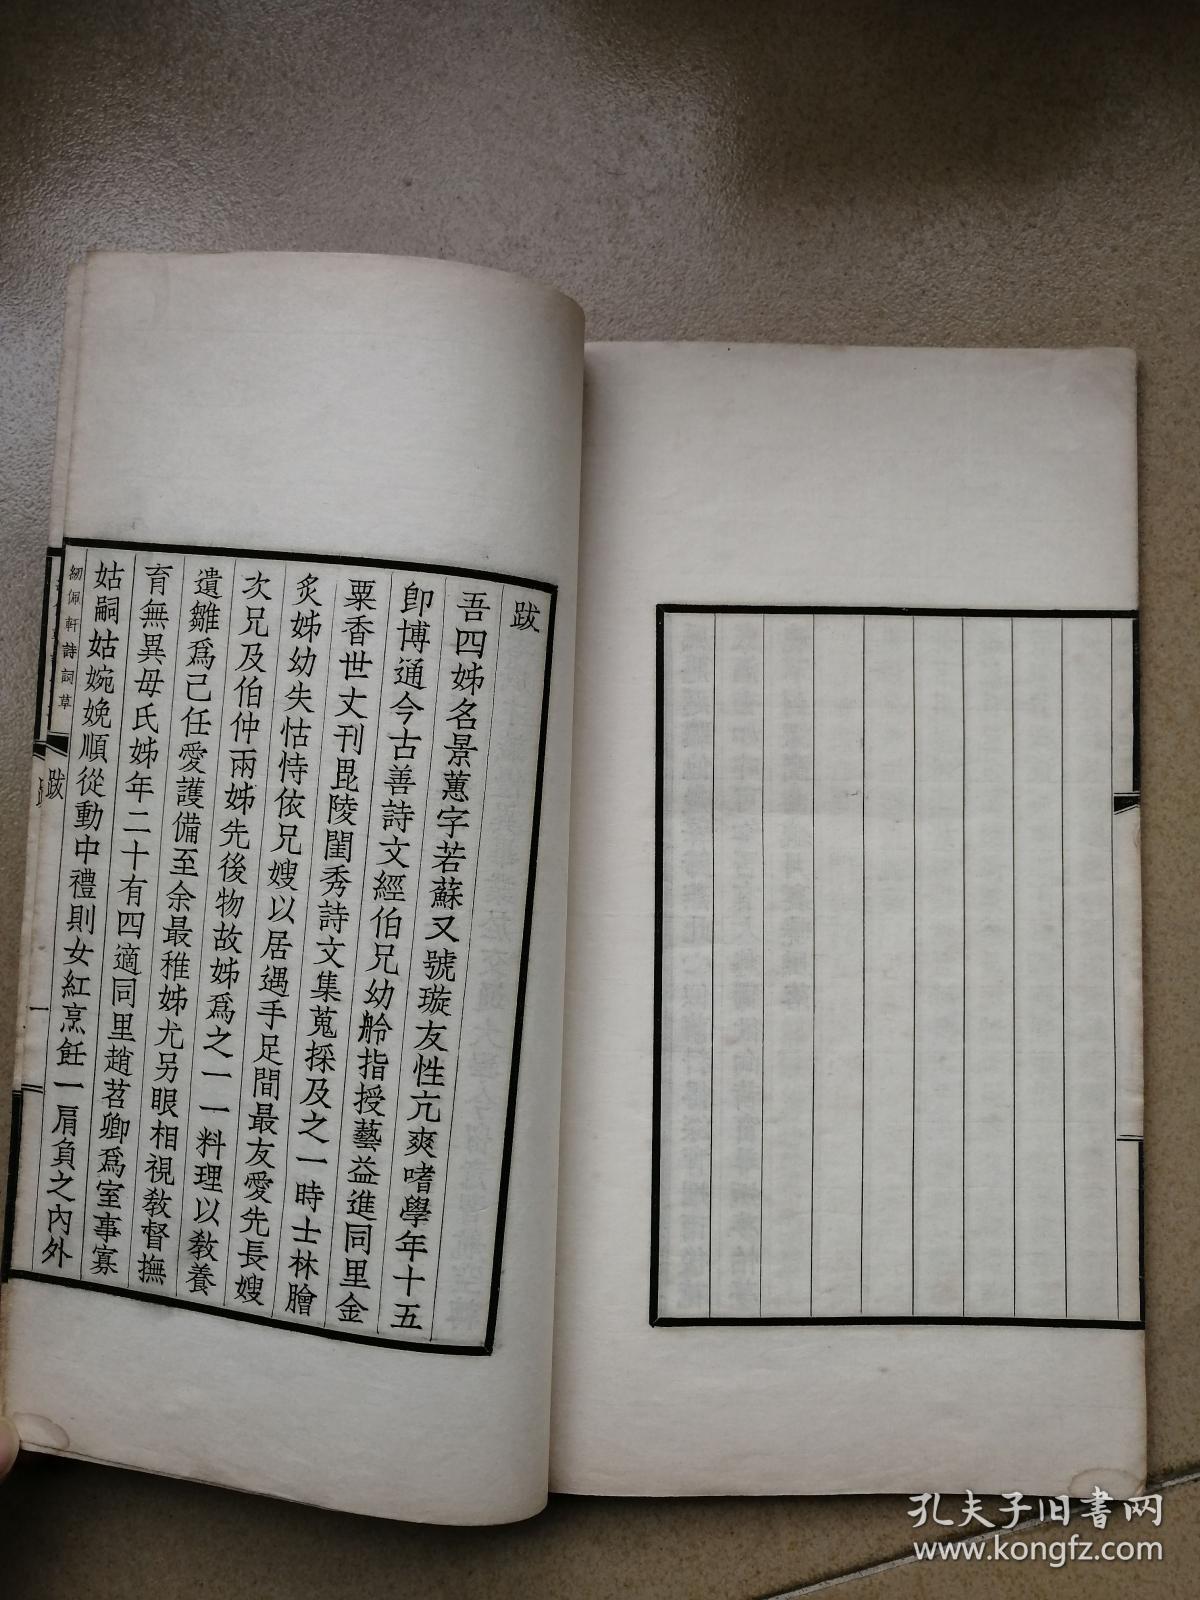 跋
吾四姊名景蕙字若蘇又號璇友性亢爽嗜學年十五
卽博通今古善詩文經伯兄幼舲指授藝益進同里金
粟香世丈刊毘陵閨秀詩文集蒐採及之一時士林膾
炙姊幼失怙恃依兄嫂以居遇手足間最友愛先長嫂
次兄及伯仲兩姊先後物故姊爲之一一料理以敎養
遺雛爲己任愛護備至余最稚姊尤另眼相視敎督撫
育無異母氏姊年二十有四適同里趙苕卿爲室事寡
姑嗣姑婉娩順從動中禮則女紅烹飪一肩負之內外
紉佩軒詩詞草
跋
一
孔夫子旧书网
www.kongfz.com